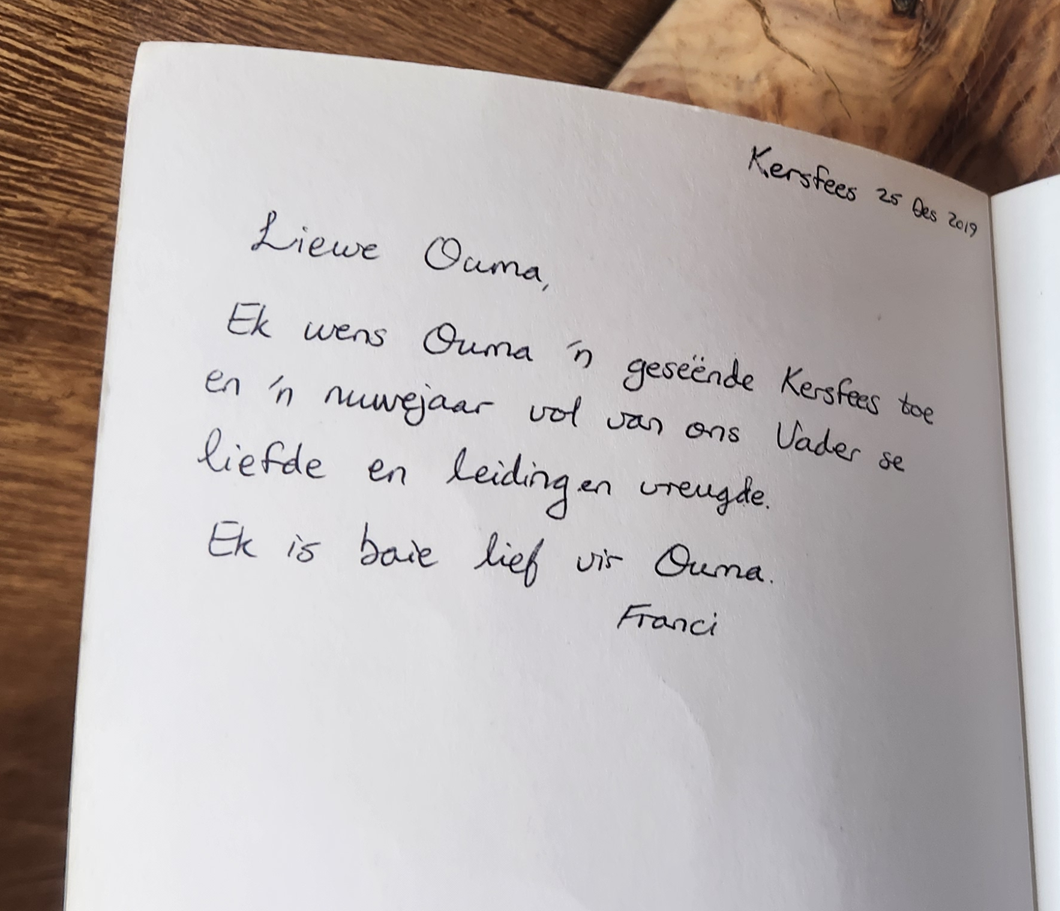 Kersfees 25 Des 2019
Liewe Ouma,
Ek wens Ouma 'n geseënde Kersfees toe
en 'n nuwejaar vol van ons Vader se
liefde en leiding en vreugde.
Ek is baie lief vir Ouma.
Franci